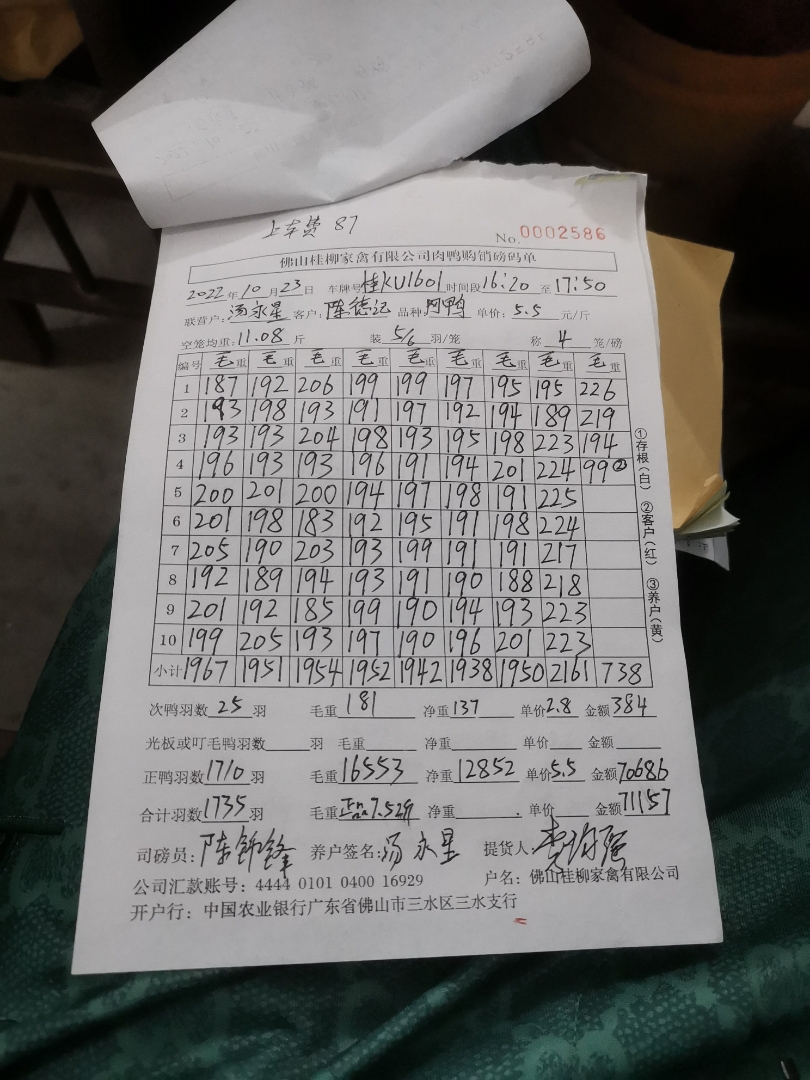 上车费 87
No. 0002586
佛山桂柳家禽有限公司肉鸭购销磅码单
2022年10月23日 车牌号桂KU1601时间段16:20至17:50
联营户:汤永星 客户:陈德记 品种 阿鸭 单价:5.5 元/斤
空笼均重:11.08 斤 装 5/6 羽/笼 称 4 笼/磅
编号 毛重 毛重 毛重 毛重 毛重 毛重 毛重 毛重 毛重
1 187 192 206 199 199 197 195 195 226
2 193 198 193 191 197 192 194 189 219
3 193 193 204 198 193 195 198 223 194
4 196 193 193 196 191 194 201 224 99②
5 200 201 200 194 197 198 191 225
6 201 198 183 192 195 191 198 224
7 205 190 203 193 199 191 191 217
8 192 189 194 193 191 190 188 218
9 201 192 185 199 190 194 193 223
10 199 205 193 197 190 196 201 223
小计 1967 1951 1954 1952 1942 1938 1950 2161 738
①存根(白) ②客户(红) ③养户(黄)
次鸭羽数 25 羽 毛重 181 净重 137 单价 2.8 金额 384
光板或叮毛鸭羽数 羽 毛重 净重 单价 金额
正鸭羽数 1710 羽 毛重 16553 净重 12852 单价 5.5 金额 70686
合计羽数 1735 羽 毛重 正品7.52斤 净重 . 单价 金额 71157
司磅员: 陈锦锋 养户签名: 汤永星 提货人:
公司汇款账号: 4444 0101 0400 16929 户名: 佛山桂柳家禽有限公司
开户行: 中国农业银行广东省佛山市三水区三水支行